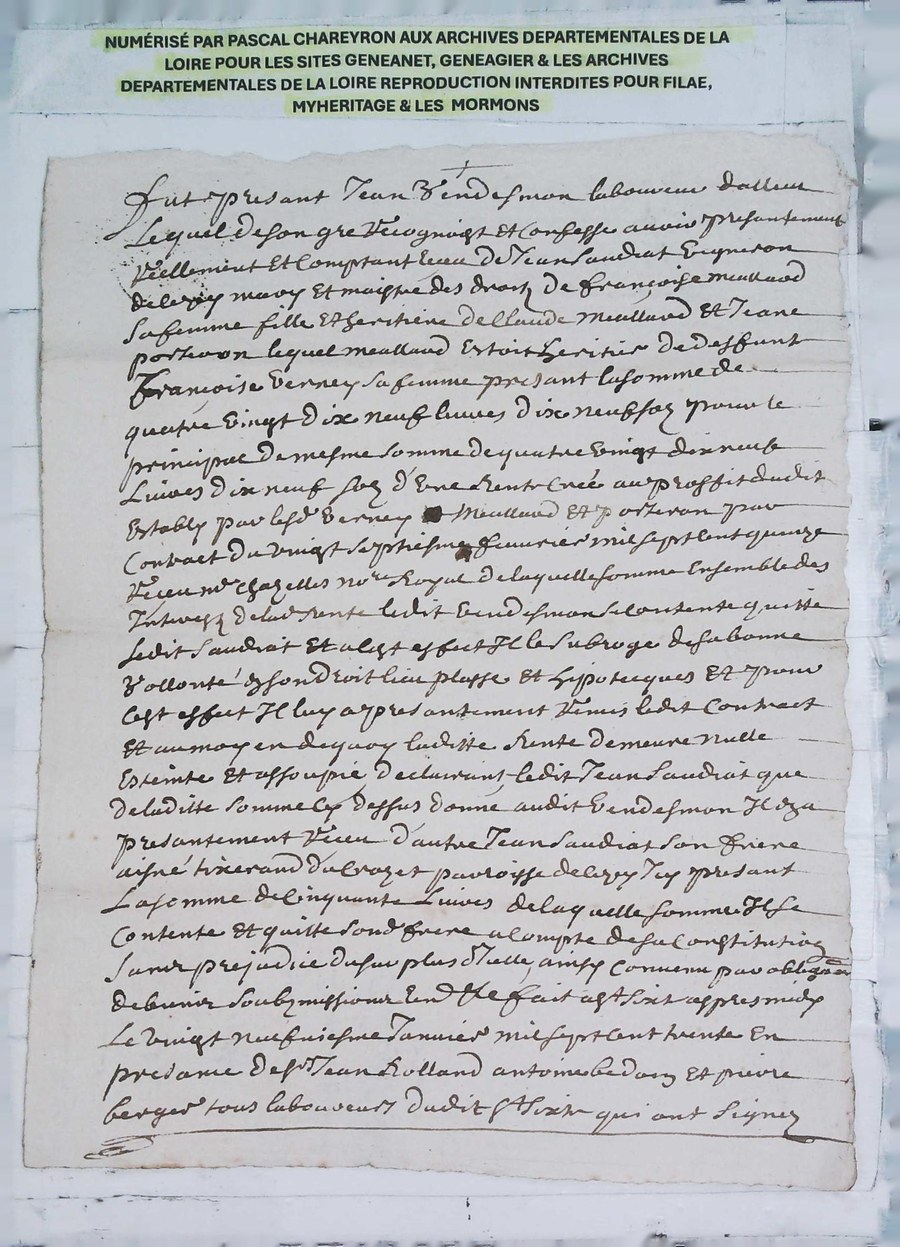 NUMÉRISÉ PAR PASCAL CHAREYRON AUX ARCHIVES DEPARTEMENTALES DE LA
LOIRE POUR LES SITES GENEANET, GENEAGIER & LES ARCHIVES
DEPARTEMENTALES DE LA LOIRE REPRODUCTION INTERDITES POUR FILAE,
MYHERITAGE & LES MORMONS
fut presant Jean Vendesmon laboureur
Lequel de son gre Recognoist et Confesse avoir presantement
Reellement et Comptant Receu de Jean Saudiat Vigneron
de mary et maistre des droitz de françoise meallaud
sa femme fille et heritiere de Claude Meallaud et Jeane
porteron lequel meallaud estoit heritier de deffunt
françoise Verney sa femme presant la somme de
quatre vingt dix neuf livres dix neuf solz pour le
principal de mesme somme de quatre vingt dix neuf
Livres dix neuf solz d'une Rente Creée au proffit dudit
Establ par lesd Verney Meallaud et porteron par
Contract du vingt septiesme feuvrier mil sept cent quinze
Receu me Chazelles nore Royal de laquelle somme Ensemble des
de lad Rente ledit Vendesmon se contente quitte
Ledit Saudiat et a cest effect Il le subroge de sa bonne
Vollonté en son droit lieu plasse et hipotecques et pour
Cest effect Il luy a presantement Remis ledit Contract
et au moyen de quoy laditte Rente demeure nulle
Esteinte et assoupie declairant ledit Jean Saudiat que
de laditte somme cy dessus donné audit Vendesmon Il en a
presantement Receu d'autre Jean Saudiat son frere
aisné tixerand du Crozet parroisse de Icy presant
La somme de Cinquante Livres de laquelle somme Il se
Contente et quitte sond frere a Compte de sa Constitution
sans prejudice du surplus d'Icelle, ainsy Convenu par
de biens soubzmissions fait a St Sixt appres midy
Le vingt neufviesme Janvier mil sept cent trente En
presance de Sr Jean Rolland antoine et pierre
berger tous laboureurs dudit St Sixte qui ont signez